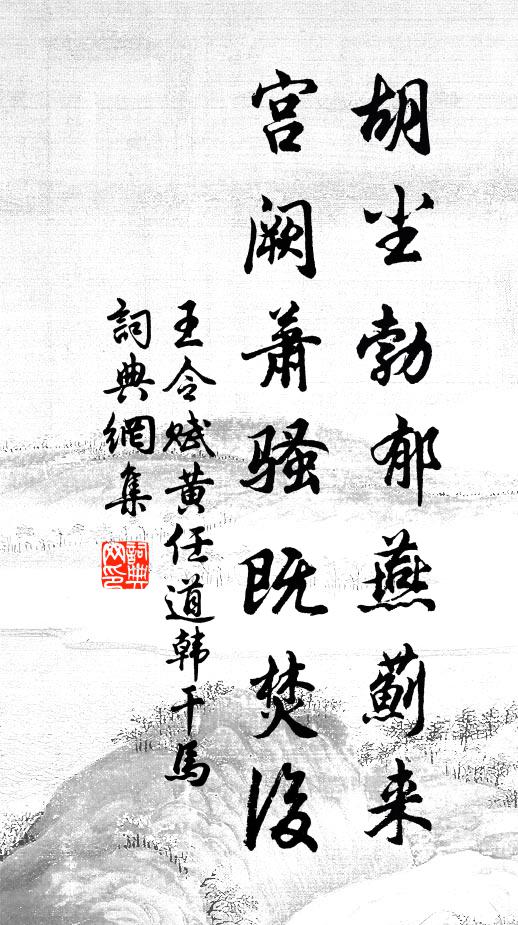 胡尘勃郁燕蓟来
宫阙萧骚既焚後
王令赋黄任道韩干馬
詞典網集
詞典網印